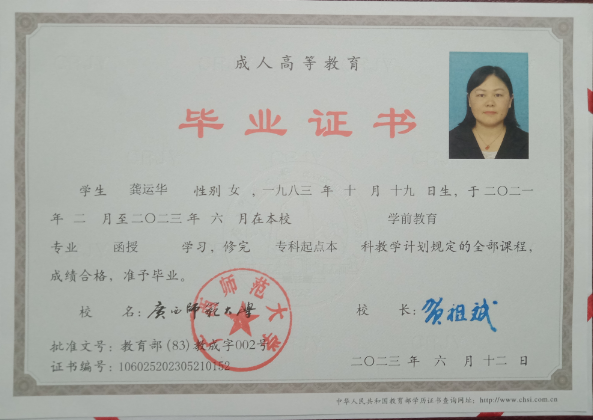 成人高等教育
毕业证书
学生 龚运华 性别 女 ，一九八三 年 十 月 十九 日生，于二〇二一
年 二 月至二〇二三年 六 月在本校 学前教育
专业 函授 学习，修完 专科起点本 科教学计划规定的全部课程，
成绩合格，准予毕业。
校 名：广西师范大学 校 长：贺祖斌
批准文号：教育部(83)教成字002号
证书编号：106025202305210152 二〇二三年 六 月 十二 日
中华人民共和国教育部学历证书查询网址：http://www.chsi.com.cn